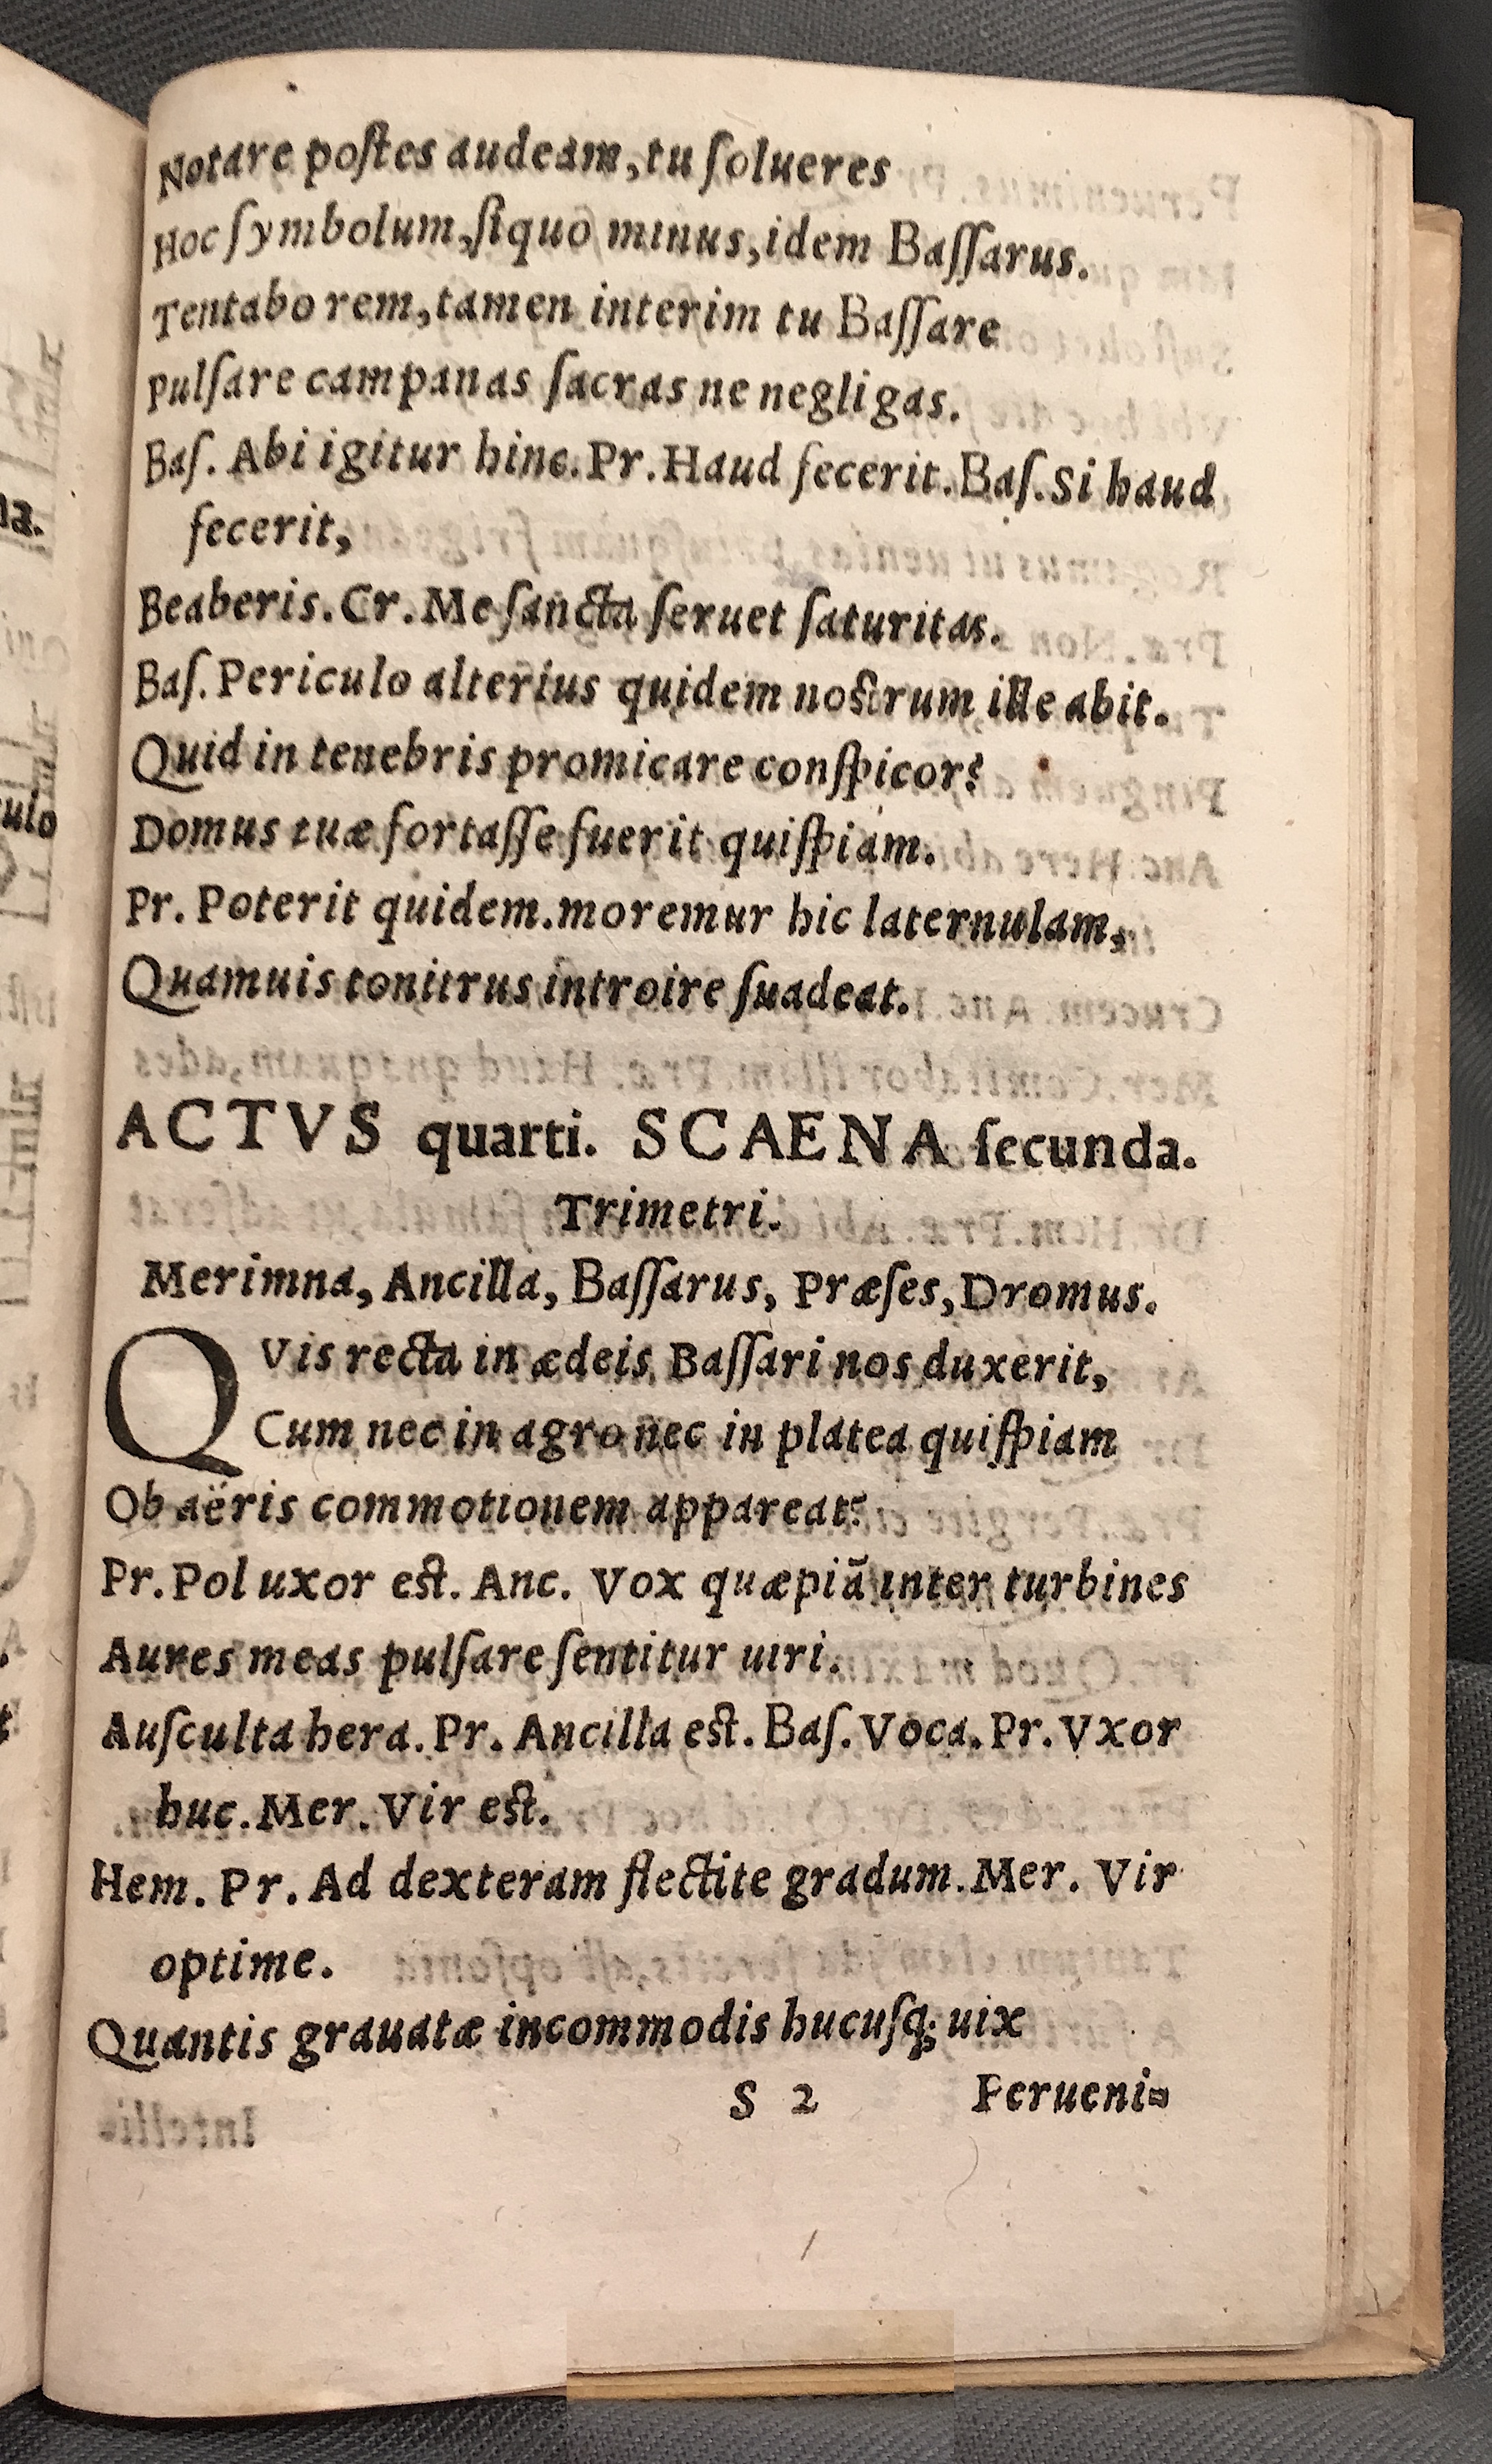 Notare poſtes audeam, tu ſolueres
Hoc ſymbolum, ſiquo minus, idem Baſſarus.
Tentabo rem, tamen interim tu Baſſare
Pulſare campanas ſacras ne negligas.
Baſ. Abi igitur hinc. Pr. Haud fecerit. Baſ. Si haud
fecerit,
Beaberis. Cr. Me ſancta ſeruet ſaturitas.
Baſ. Periculo alterius quidem noſtrum ille abit.
Quid in tenebris promicare conſpicor?
Domus tuæ fortaſſe fuerit quiſpiam.
Pr. Poterit quidem. moremur hic laternulam,
Quamuis tonitrus introire ſuadeat.
ACTVS quarti. SCAENA ſecunda.
Trimetri.
Merimna, Ancilla, Baſſarus, Præſes, Dromus.
QVis recta in ædeis Baſſari nos duxerit,
Cum nec in agro nec in platea quiſpiam
Ob aëris commotionem appareat?
Pr. Pol uxor eſt. Anc. Vox quæpiā inter turbines
Aures meas pulſare ſentitur uiri.
Auſculta hera. Pr. Ancilla eſt. Baſ. Voca. Pr. Vxor
huc. Mer. Vir eſt.
Hem. Pr. Ad dexteram flectite gradum. Mer. Vir
optime.
Quantis grauatæ incommodis hucuſq; uix
S 2 Perueni=